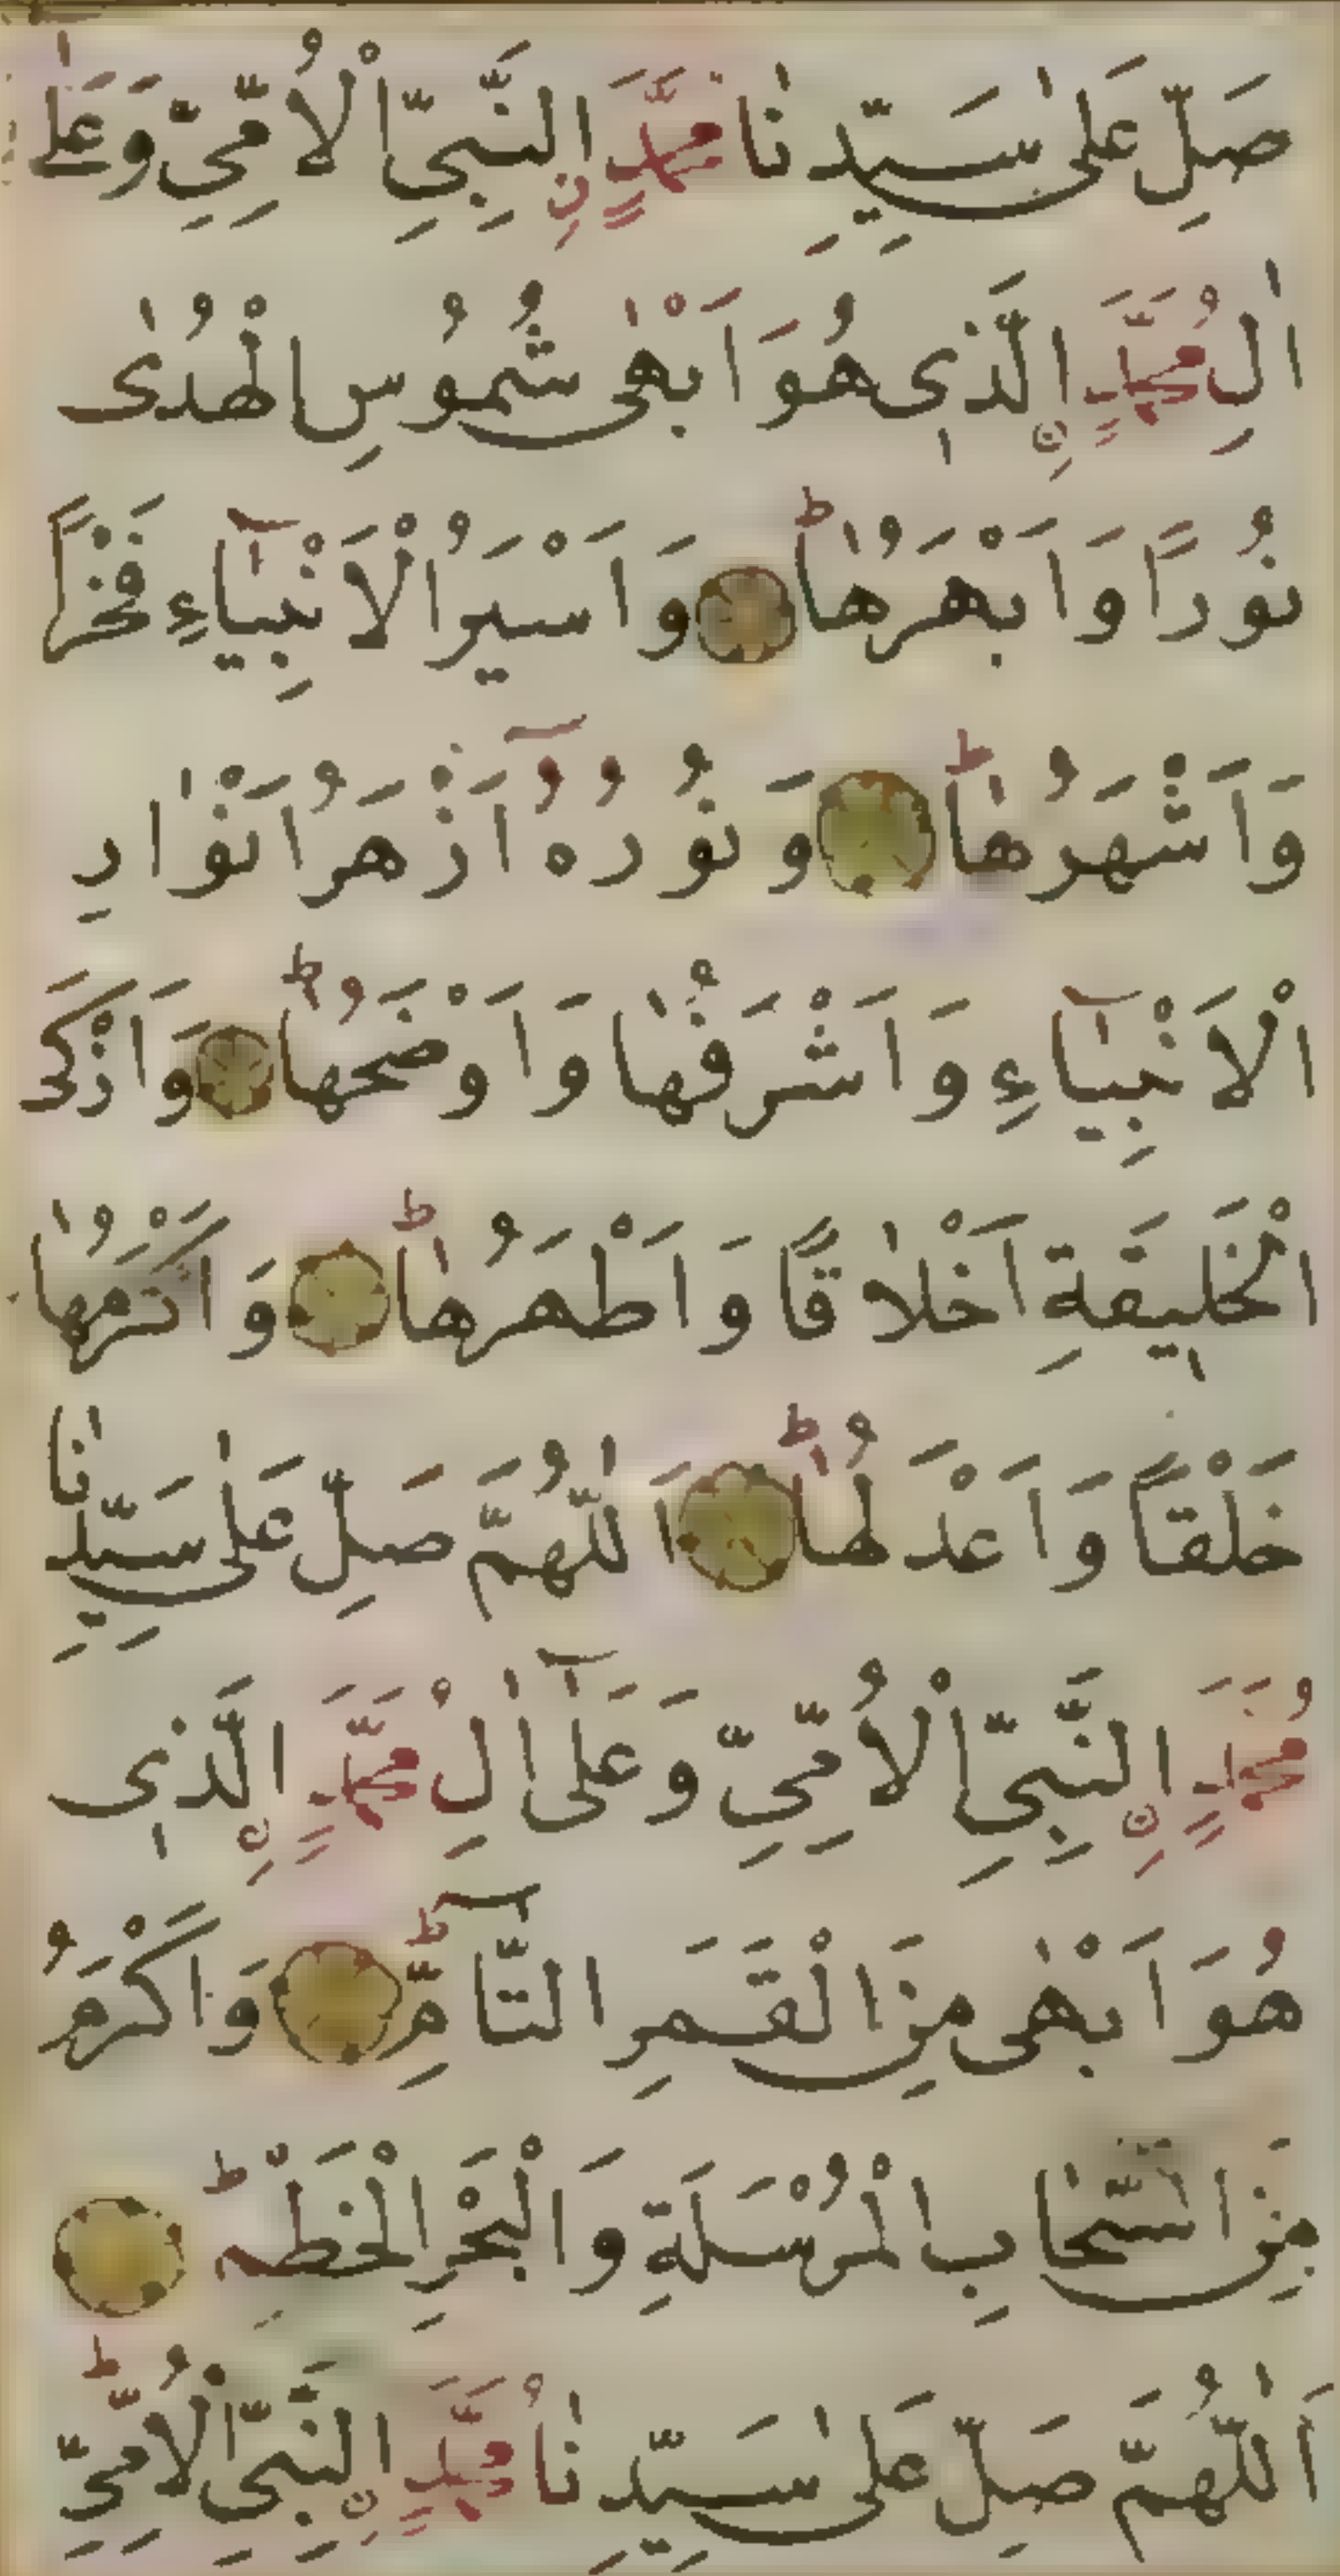 صَلِّ عَلٰى سَيِّدِنٰا مُحَمَّدٍ نِ النَّبِىِّ الْاُمِّىِّ وَعَلٰى
اٰلِ مُحَمَّدٍ نِ الَّذِى هُوَ اَبْهٰى شُمُوسِ الْهُدٰى
نُورًا وَاَبْهَرُهٰا ط وَاَسْيَرُ الْاَنْبِيٰٓاءِ فَخْرًا
وَاَشْهَرُهٰا ط وَنُورُهُٓ اَزْهَرُ اَنْوٰارِ
الْاَنْبِيٰٓاءِ وَاَشْرَفُهٰا وَاَوْضَحُهٰا ط وَاَزْكَى
الْخَلِيقَةِ اَخْلٰاقًا وَاَطْهَرُهٰا ط وَاَكْرَمُهٰا
خَلْقًا وَاَعْدَلُهٰا ط اَللّٰهُمَّ صَلِّ عَلٰى سَيِّدِنٰا
مُحَمَّدٍ نِ النَّبِىِّ الْاُمِّىِّ وَعَلٰٓى اٰلِ مُحَمَّدٍ نِ الَّذِى
هُوَ اَبْهٰى مِنَ الْقَمَرِ التَّآمِّ ط وَاَكْرَمُ
مِنَ السَّحٰابِ الْمُرْسَلَةِ وَالْبَحْرِ الْخَطْمِ ط
اَللّٰهُمَّ صَلِّ عَلٰى سَيِّدِنٰا مُحَمَّدٍ نِ النَّبِىِّ الْاُمِّىِّ ط